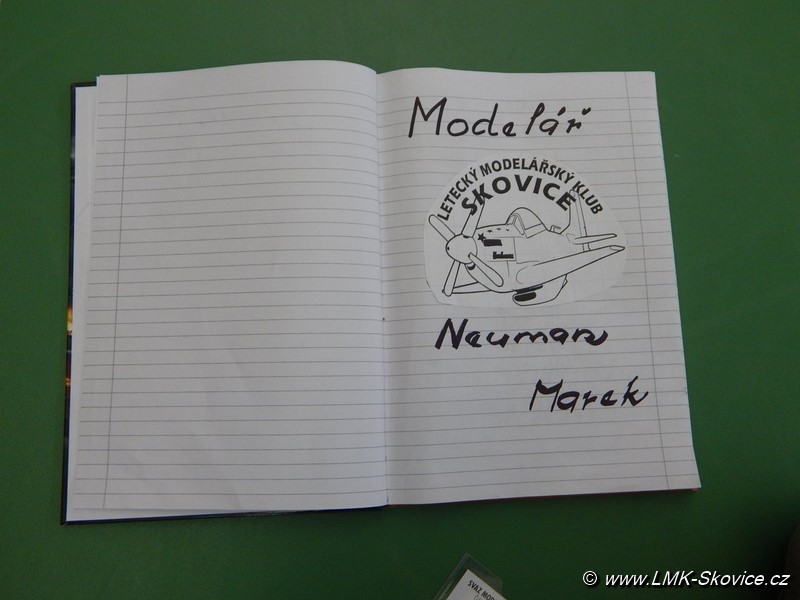 Modelář
LETECKÝ MODELÁŘSKÝ KLUB
SKOVICE
Neuman
Marek
SVAZ MOD
© www.LMK-Skovice.cz